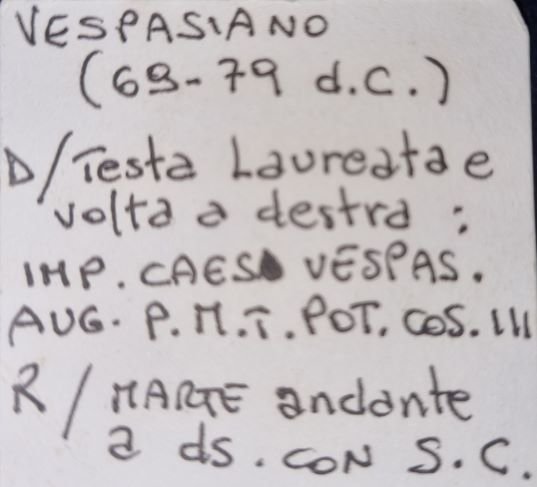 VESPASIANO
(69-79 d.C.)
D/Testa Laureata e
volta a destra :
IMP. CAES VESPAS.
AUG. P.M.T. POT. COS. III
R/ MARTE andante
a ds. CON S.C.